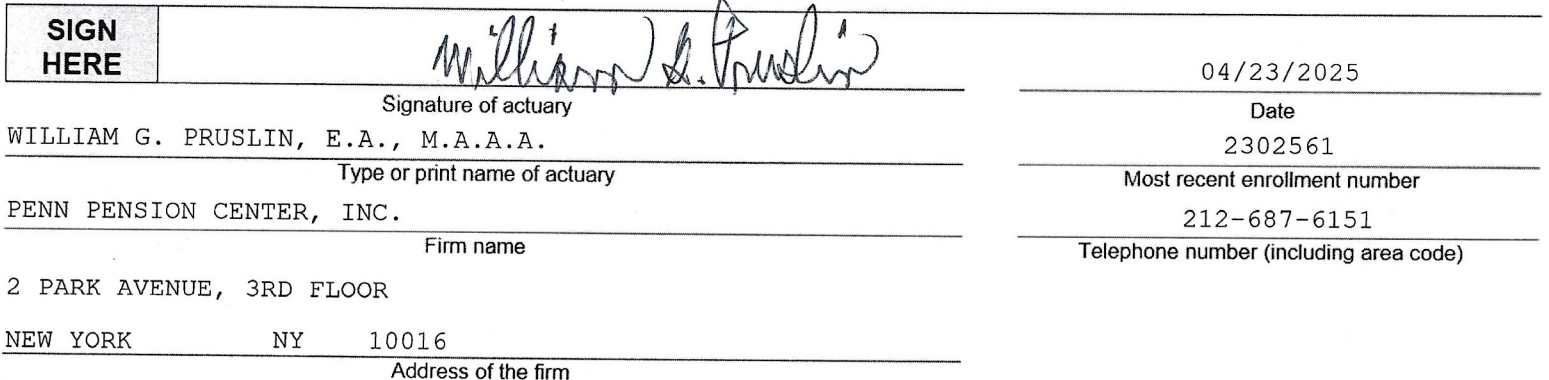 SIGN
HERE
William G. Pruslin
04/23/2025
Signature of actuary
Date
WILLIAM G. PRUSLIN, E.A., M.A.A.A.
2302561
Type or print name of actuary
Most recent enrollment number
PENN PENSION CENTER, INC.
212-687-6151
Firm name
Telephone number (including area code)
2 PARK AVENUE, 3RD FLOOR
NEW YORK NY 10016
Address of the firm